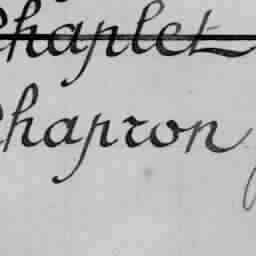 Chaplet
Chapron